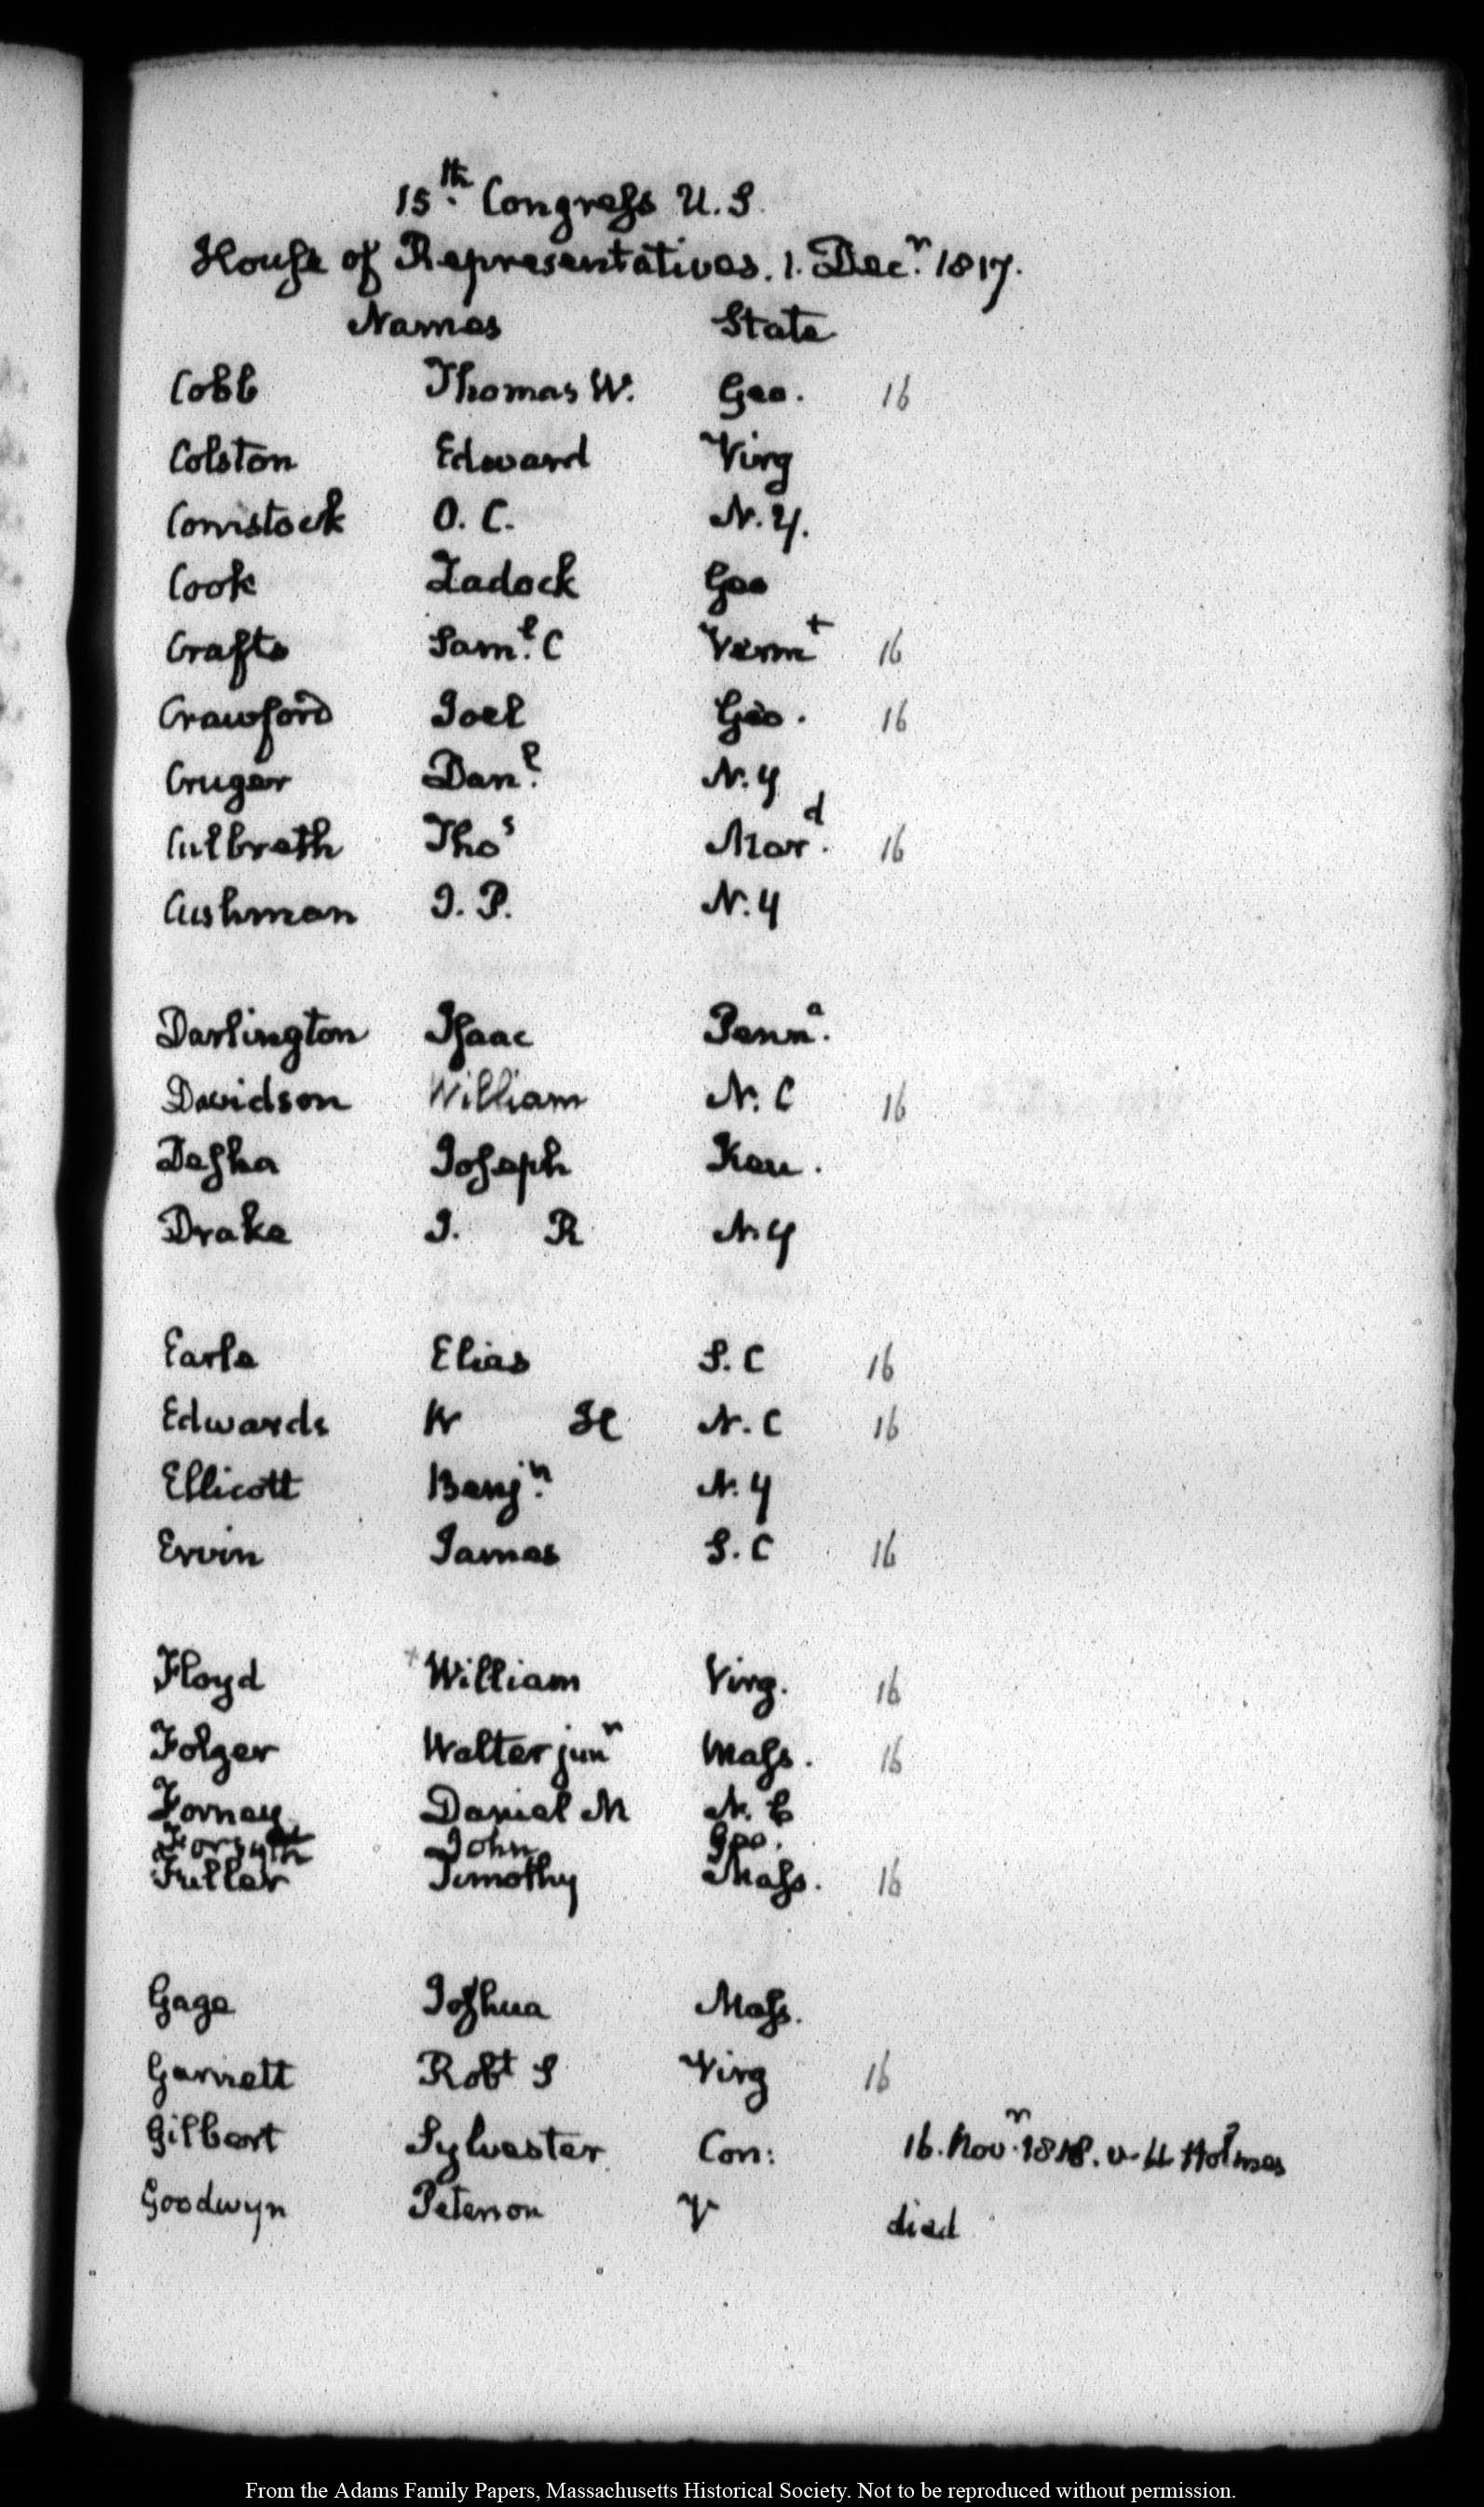 15th. Congress U.S.
House of Representatives. 1. Decr. 1817.
Names State
Cobb Thomas W. Geo. 16
Colston Edward Virg
Comstock O. C. N.Y.
Cook Zadock Geo
Crafts Saml. C Vermt 16
Crawford Joel Geo. 16
Cruger Danl. N.Y
Culbreth Thos Mard. 16
Cushman J. P. N.Y
Darlington Isaac Penna.
Davidson William N. C 16
Desha Joseph Ken.
Drake J. R N.Y
Earle Elias S. C 16
Edwards W H N. C 16
Ellicott Benjn. N. Y
Ervin James S. C 16
Floyd +William Virg. 16
Folger Walter junr Mass. 16
Forney Daniel M N. C
Forsyth John Geo.
Fuller Timothy Mass. 16
Gage Joshua Mass.
Garnett Robt S Virg 16
Gilbert Sylvester Con: 16. Novr. 1818. v. Holmes
Goodwyn Peterson V died
From the Adams Family Papers, Massachusetts Historical Society. Not to be reproduced without permission.